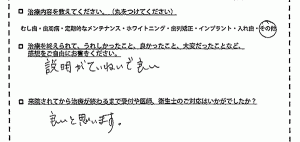 □ 治療内容を教えてください。（丸をつけてください）
むし歯・歯周病・定期的なメンテナンス・ホワイトニング・歯列矯正・インプラント・入れ歯・その他
□ 治療を終えられて、うれしかったこと、良かったこと、大変だったことなど、
感想をご自由にお書きください。
説明がていねいで良い
□ 来院されてから治療が終わるまで受付や医師、衛生士のご対応はいかがでしたか？
良いと思います。